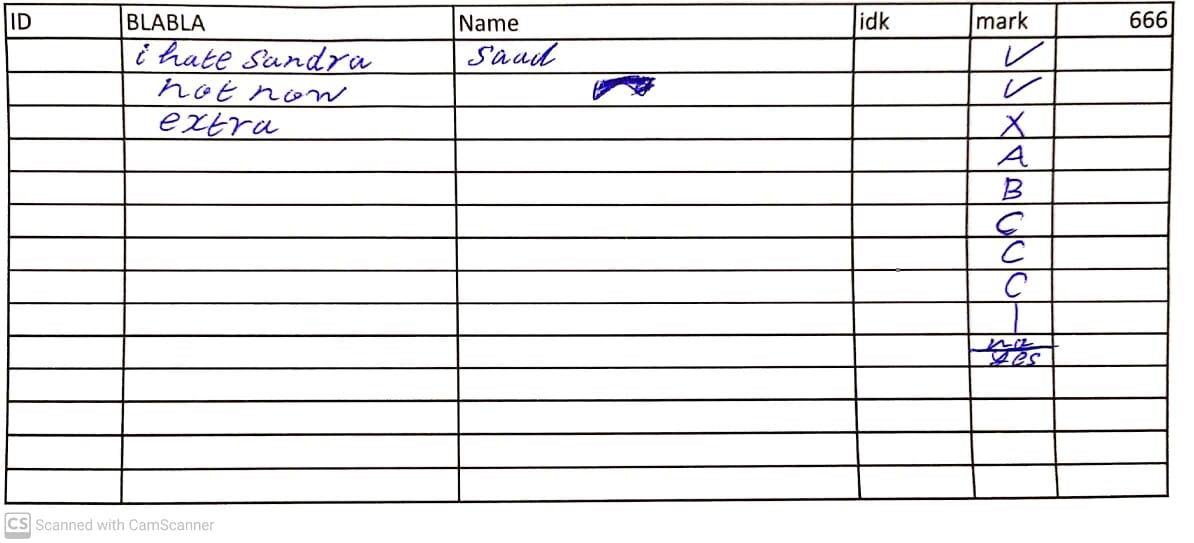 ID BLABLA Name idk mark 666
i hate Sandra Saad ✓
not now ✓
extra X
A
B
C
C
C
|
no
yes
CS Scanned with CamScanner